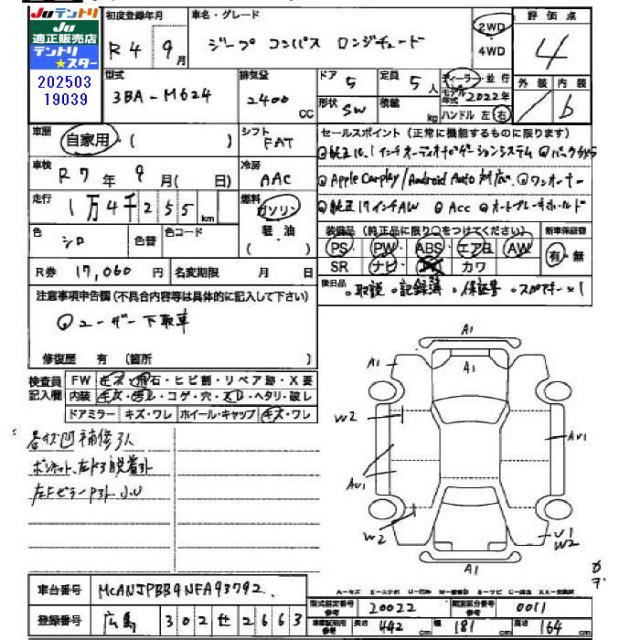 JUテントリ
JU
適正販売店
テントリ
★スター
202503
19039
初度登録年月
R4年9月
車名・グレード
ジープ コンパス ロンジチュード
2WD
4WD
評価点
4
型式
3BA-M624
排気量
2400 CC
ドア 5
定員 5人
形状 SW
積載 kg
ディーラー・並行
モデル年式 2022年
ハンドル 左 右
外装 内装
b
車歴
自家用・( )
シフト
FAT
セールスポイント(正常に機能するものに限ります)
車検
R7年9月( 日)
冷房
AAC
◎純正10.1インチオーディオナビゲーションシステム ◎バックカメラ
◎Apple Carplay/Android Auto対応 ◎ワンオーナー
◎純正17インチAW ◎Acc ◎オートブレーキホールド
走行
1万4千255km
燃料
ガソリン
軽・油
( )
色
シロ
色替
色コード
装備品(純正品に限り○をつけてください)
PS・PW・ABS・エアB・AW
SR ナビ・ カワ
新車保証書
有・無
R券 17,060円
名変期限 月 日
後日品 ○取説 ○記録簿 ○保証書 ○スペアキー×1
注意事項申告欄(不具合内容等は具体的に記入して下さい)
◎ユーザー下取車
修復歴 有 (箇所 )
検査員
記入欄
FW キズ・飛石・ヒビ割・リペア跡・X要
内装 キズ・汚レ・コゲ・穴・スレ・ヘタリ・破レ
ドアミラー キズ・ワレ ホイール・キャップ キズ・ワレ
A1
A1
A1
W2
AU1
AU1
W2
U1
W2
A1
車台番号
MCANJPBB9NFA93792
登録番号
広島 302 せ 2663
型式指定番号
参考
20022
類別区分番号
参考
0011
車検証記載
参考
長さ 442 cm
幅 181 cm
高さ 164 cm